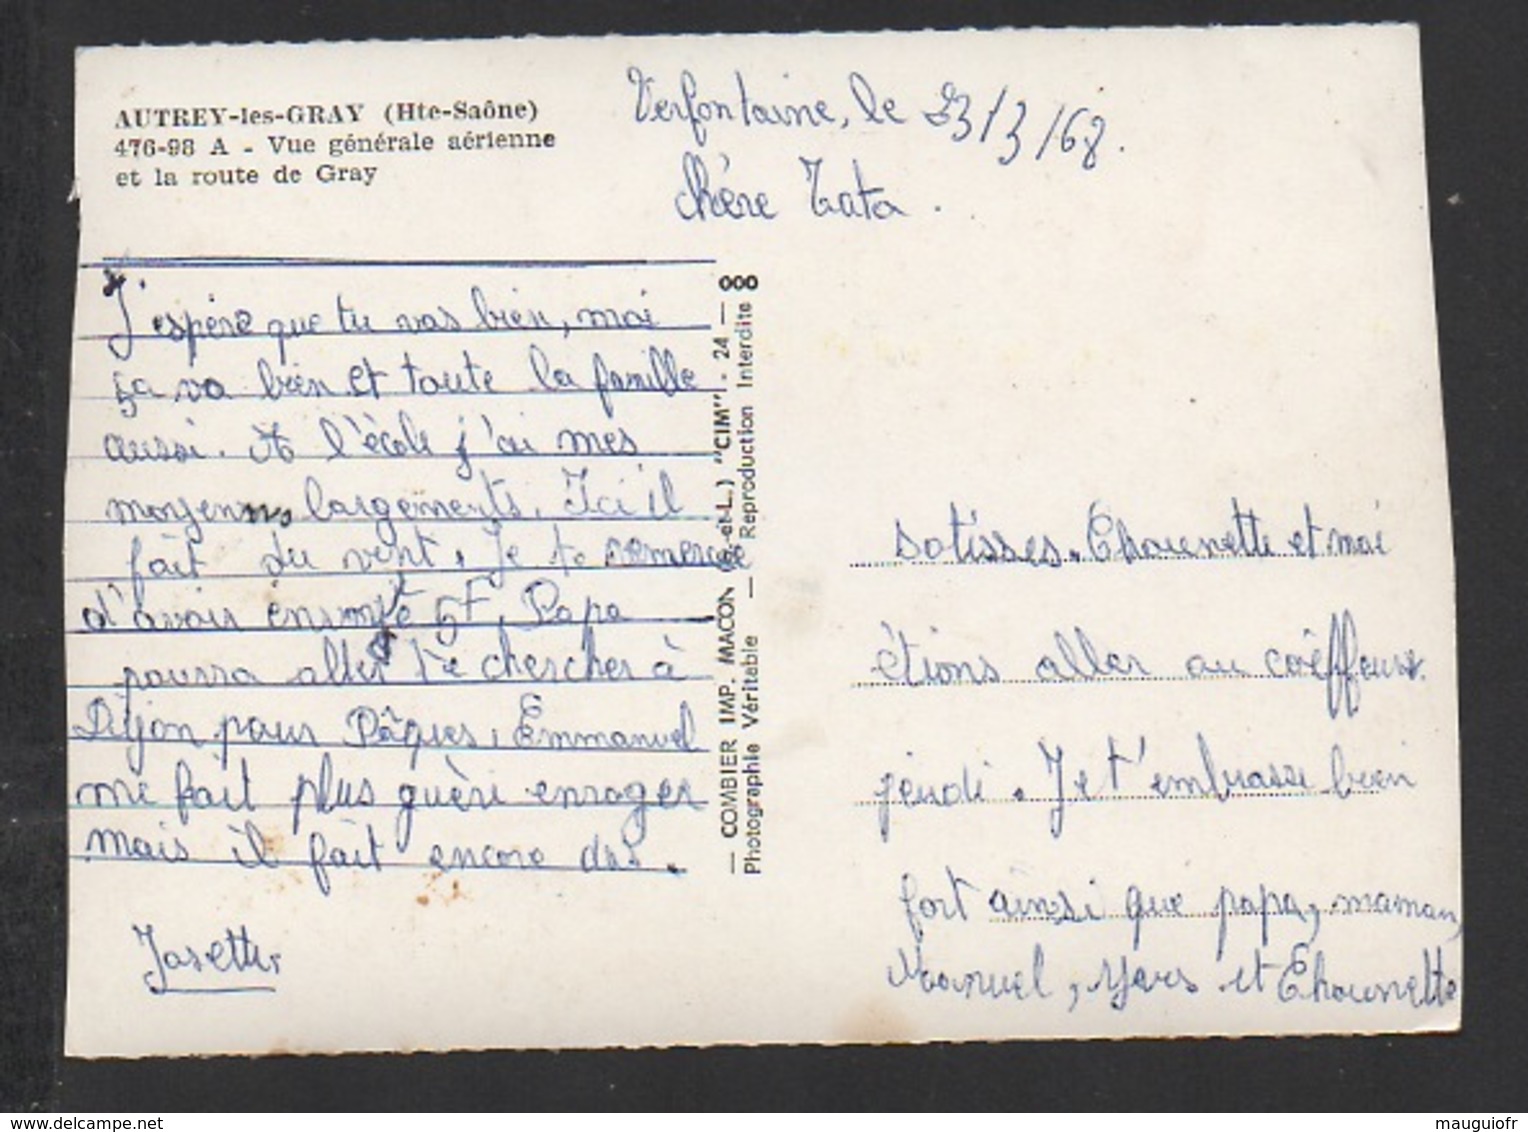 AUTREY-les-GRAY (Hte-Saône)
476-98 A - Vue générale aérienne
et la route de Gray
Verfontaine, le 23/3/68.
chère Tata.
J'espère que tu vas bien, moi
ça va bien et toute la famille
aussi. A l'école j'ai mes
moyenns largements. Ici il
fait du vent. Je te remercie
d'avoir envoyé 5F. Papa
pourra aller te chercher à
Dijon pour Pâques. Emmanuel
me fait plus guère enrager
mais il fait encore des.
Josette
— COMBIER IMP. MACON (S.-et-L.) "CIM" - 24 — 000
Photographie Véritable — Reproduction Interdite
sotisses. Chounette et moi
étions aller au coiffeur
jeudi. Je t'embrasse bien
fort ainsi que papa, maman,
Manuel, et Chounette
mauguiofr